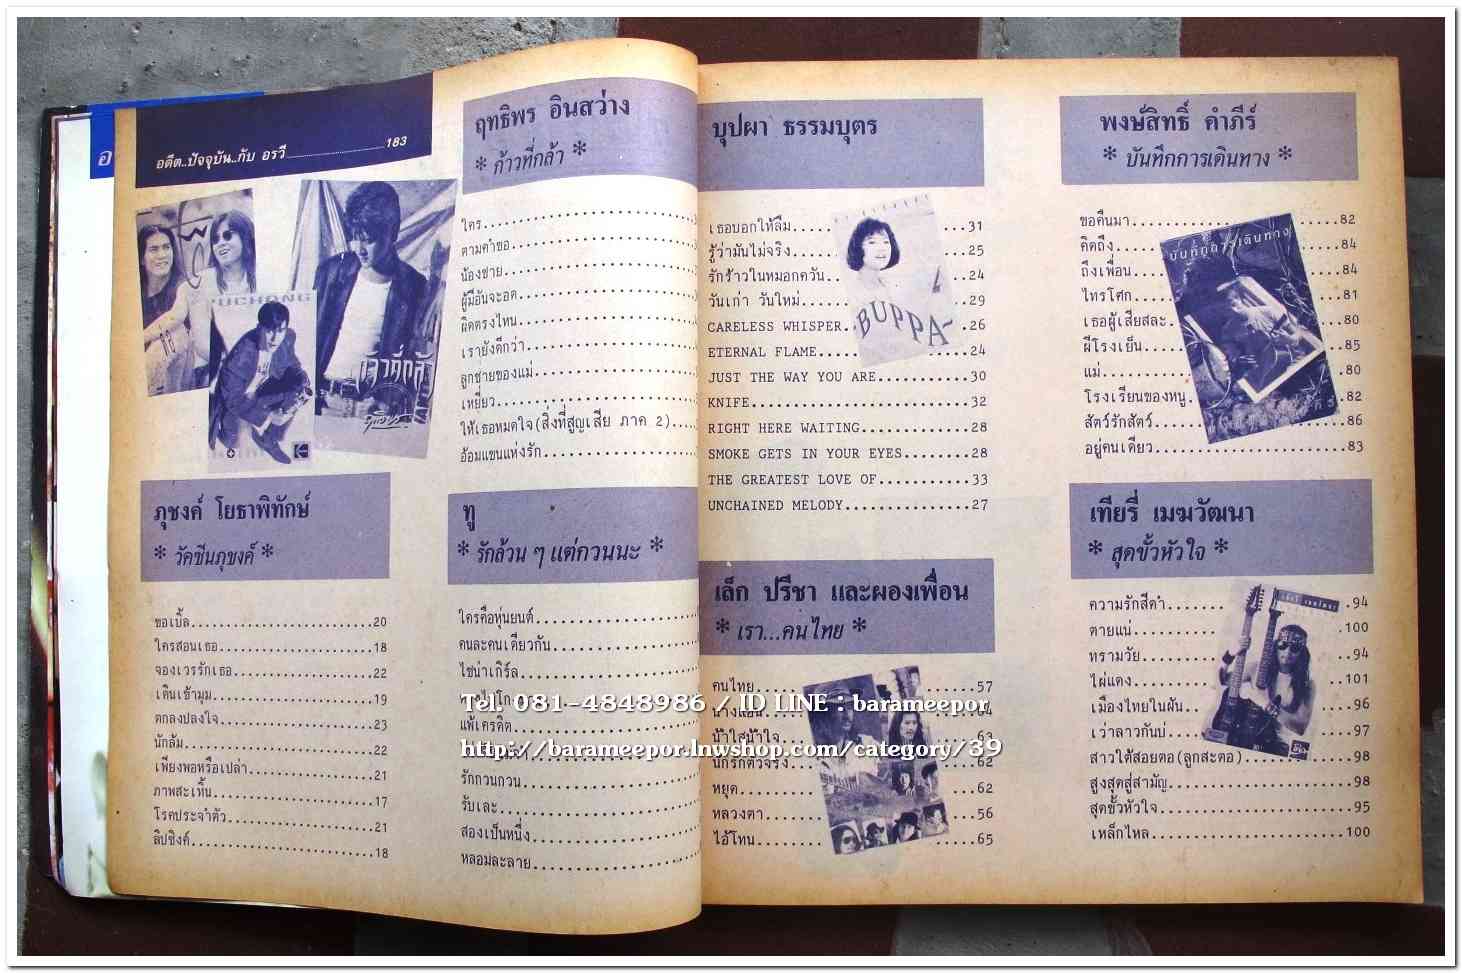 อ
อดีต..ปัจจุบัน..กับ อรวี 183
YUCHONG
ก้าวที่กล้า
ภุชงค์ โยธาพิทักษ์
* วัคซีนภุชงค์ *
ขอเบิ้ล 20
ใครสอนเธอ 18
จองเวรรักเธอ 22
เดินเข้ามุม 19
ตกลงปลงใจ 23
นักล้ม 22
เพียงพอหรือเปล่า 21
ภาพสะเทิ้น 17
โรคประจำตัว 21
ลิปซิงค์ 18
ฤทธิพร อินสว่าง
* ก้าวที่กล้า *
ใคร
ตามคำขอ
น้องชาย
ผู้มีอันจะอด
ผิดตรงไหน
เรายังดีกว่า
ลูกชายของแม่
เหยี่ยว
ให้เธอหมดใจ(สิ่งที่สูญเสีย ภาค 2)
อ้อมแขนแห่งรัก
ทู
* รักล้วน ๆ แต่กวนนะ *
ใครคือหุ่นยนต์
คนละคนเดียวกัน
ไซน่าเกิร์ล
แพ้เครดิต
รักกวนกวน
รับเละ
สองเป็นหนึ่ง
หลอมละลาย
บุปผา ธรรมบุตร
เธอบอกให้ลืม 31
รู้ว่ามันไม่จริง 25
รักร้าวในหมอกควัน 24
วันเก่า วันใหม่ 29
CARELESS WHISPER 26
ETERNAL FLAME 24
JUST THE WAY YOU ARE 30
KNIFE 32
RIGHT HERE WAITING 28
SMOKE GETS IN YOUR EYES 28
THE GREATEST LOVE OF 33
UNCHAINED MELODY 27
BUPPA
เล็ก ปรีชา และผองเพื่อน
* เรา...คนไทย *
คนไทย 57
นางแอ่น 64
น้ำใสน้ำใจ 63
นักรักตัวจริง 62
หยุด 62
หลวงตา 56
ไอ้โทน 65
พงษ์สิทธิ์ คำภีร์
* บันทึกการเดินทาง *
ขอคืนมา 82
คิดถึง 84
ถึงเพื่อน 84
ไทรโศก 81
เธอผู้เสียสละ 80
ผีโรงเย็น 85
แม่ 80
โรงเรียนของหนู 82
สัตว์รักสัตว์ 86
อยู่คนเดียว 83
บันทึกการเดินทาง
เทียรี่ เมฆวัฒนา
* สุดขั้วหัวใจ *
ความรักสีดำ 94
ตายแน่ 100
ทรามวัย 94
ไผ่แดง 101
เมืองไทยในฝัน 96
เว่าลาวกันบ่ 97
สาวใต้สอยตอ(ลูกสะตอ) 98
สูงสุดสู่สามัญ 98
สุดขั้วหัวใจ 95
เหล็กไหล 100
Tel. 081-4848986 / ID LINE : barameepor
http://barameepor.lnwshop.com/category/39